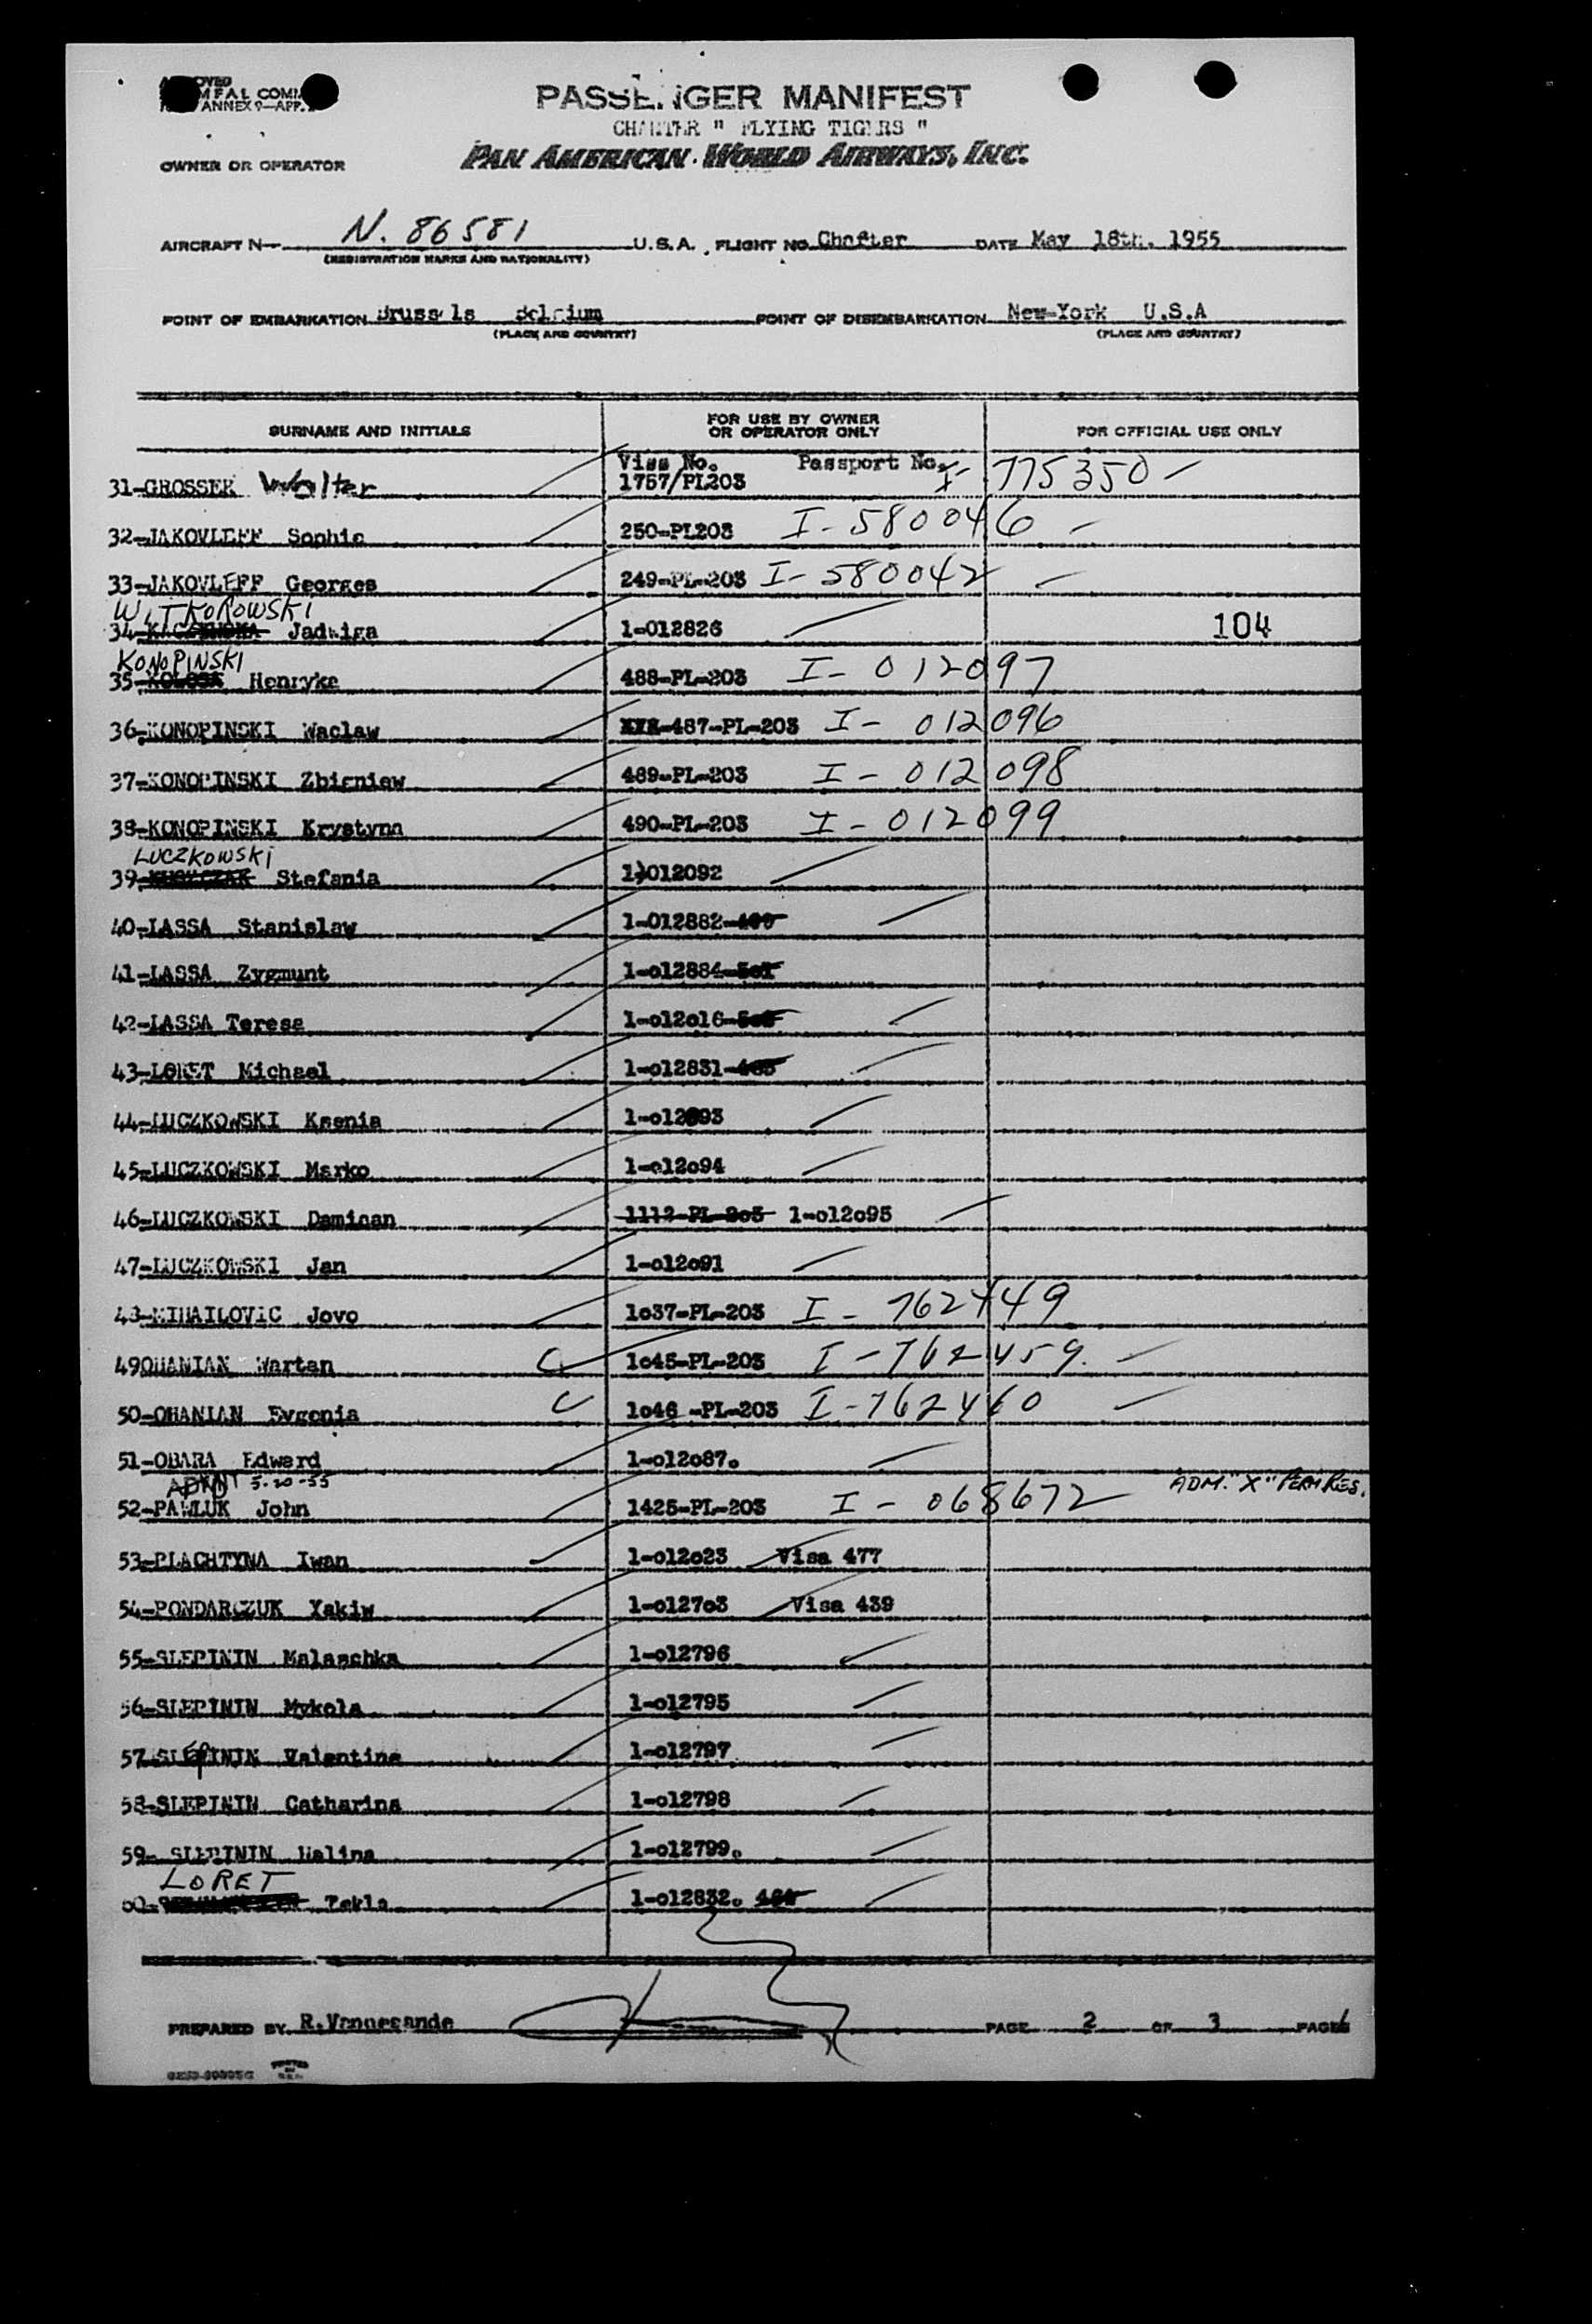 PASSENGER MANIFEST
CHARTER " FLYING TIGERS "
OWNER OR OPERATOR PAN AMERICAN WORLD AIRWAYS, INC.
AIRCRAFT N N. 86581 U.S.A. FLIGHT NO. Charter DATE May 18th. 1955
(REGISTRATION MARKS AND NATIONALITY)
POINT OF EMBARKATION Brussels Belgium POINT OF DISEMBARKATION New-York U.S.A
(PLACE AND COUNTRY) (PLACE AND COUNTRY)
SURNAME AND INITIALS FOR USE BY OWNER OR OPERATOR ONLY FOR OFFICIAL USE ONLY
Visa No. Passport No.
31-GROSSER Walter 1757/PL203 I- 775350
32-JAKOVLEFF Sophie 250-PL203 I-580046
33-JAKOVLEFF Georges 249-PL-203 I-580042
WITKOROWSKI
34- Jadwiga 1-012826 104
KONOPINSKI
35- Henryka 488-PL-203 I-012097
36-KONOPINSKI Waclaw 487-PL-203 I-012096
37-KONOPINSKI Zbigniew 489-PL-203 I-012098
38-KONOPINSKI Krystyna 490-PL-203 I-012099
LUCZKOWSKI
39- Stefania 1-012092
40-LASSA Stanislaw 1-012882
41-LASSA Zygmunt 1-o12884
42-LASSA Teresa 1-o12o16
43-LORET Michael 1-o12831
44-LUCZKOWSKI Ksenia
45-LUCZKOWSKI Marko 1-o12o94
46-LUCZKOWSKI Damiaan 1112-PL-2o3 1-o12o95
47-LUCZKOWSKI Jan 1-o12o91
48-MIHAILOVIC Jovo 1o37-PL-203 I-762449
49OHANIAN Wartan 1o45-PL-203 I-762459.
50-OHANIAN Evgenia 1o46 -PL-203 I-762460
51-OBARA Edward 1-o12o87.
5-20-55 ADM. "X" PERM RES.
52-PAWLUK John 1425-PL-203 I-068672
53-PLACHTYNA Iwan 1-o12o23 Visa 477
54-PONDARCZUK Yakiw 1-o127o3 Visa 439
55-SLEPININ Malaschka 1-o12796
56-SLEPININ Mykola 1-o12795
57-SLEPININ Valentina 1-o12797
58-SLEPININ Catharina 1-o12798
59- SLEPININ Halina 1-o12799.
LORET
60- Tekla 1-o12832.
PREPARED BY R. PAGE 2 OF 3 PAGES